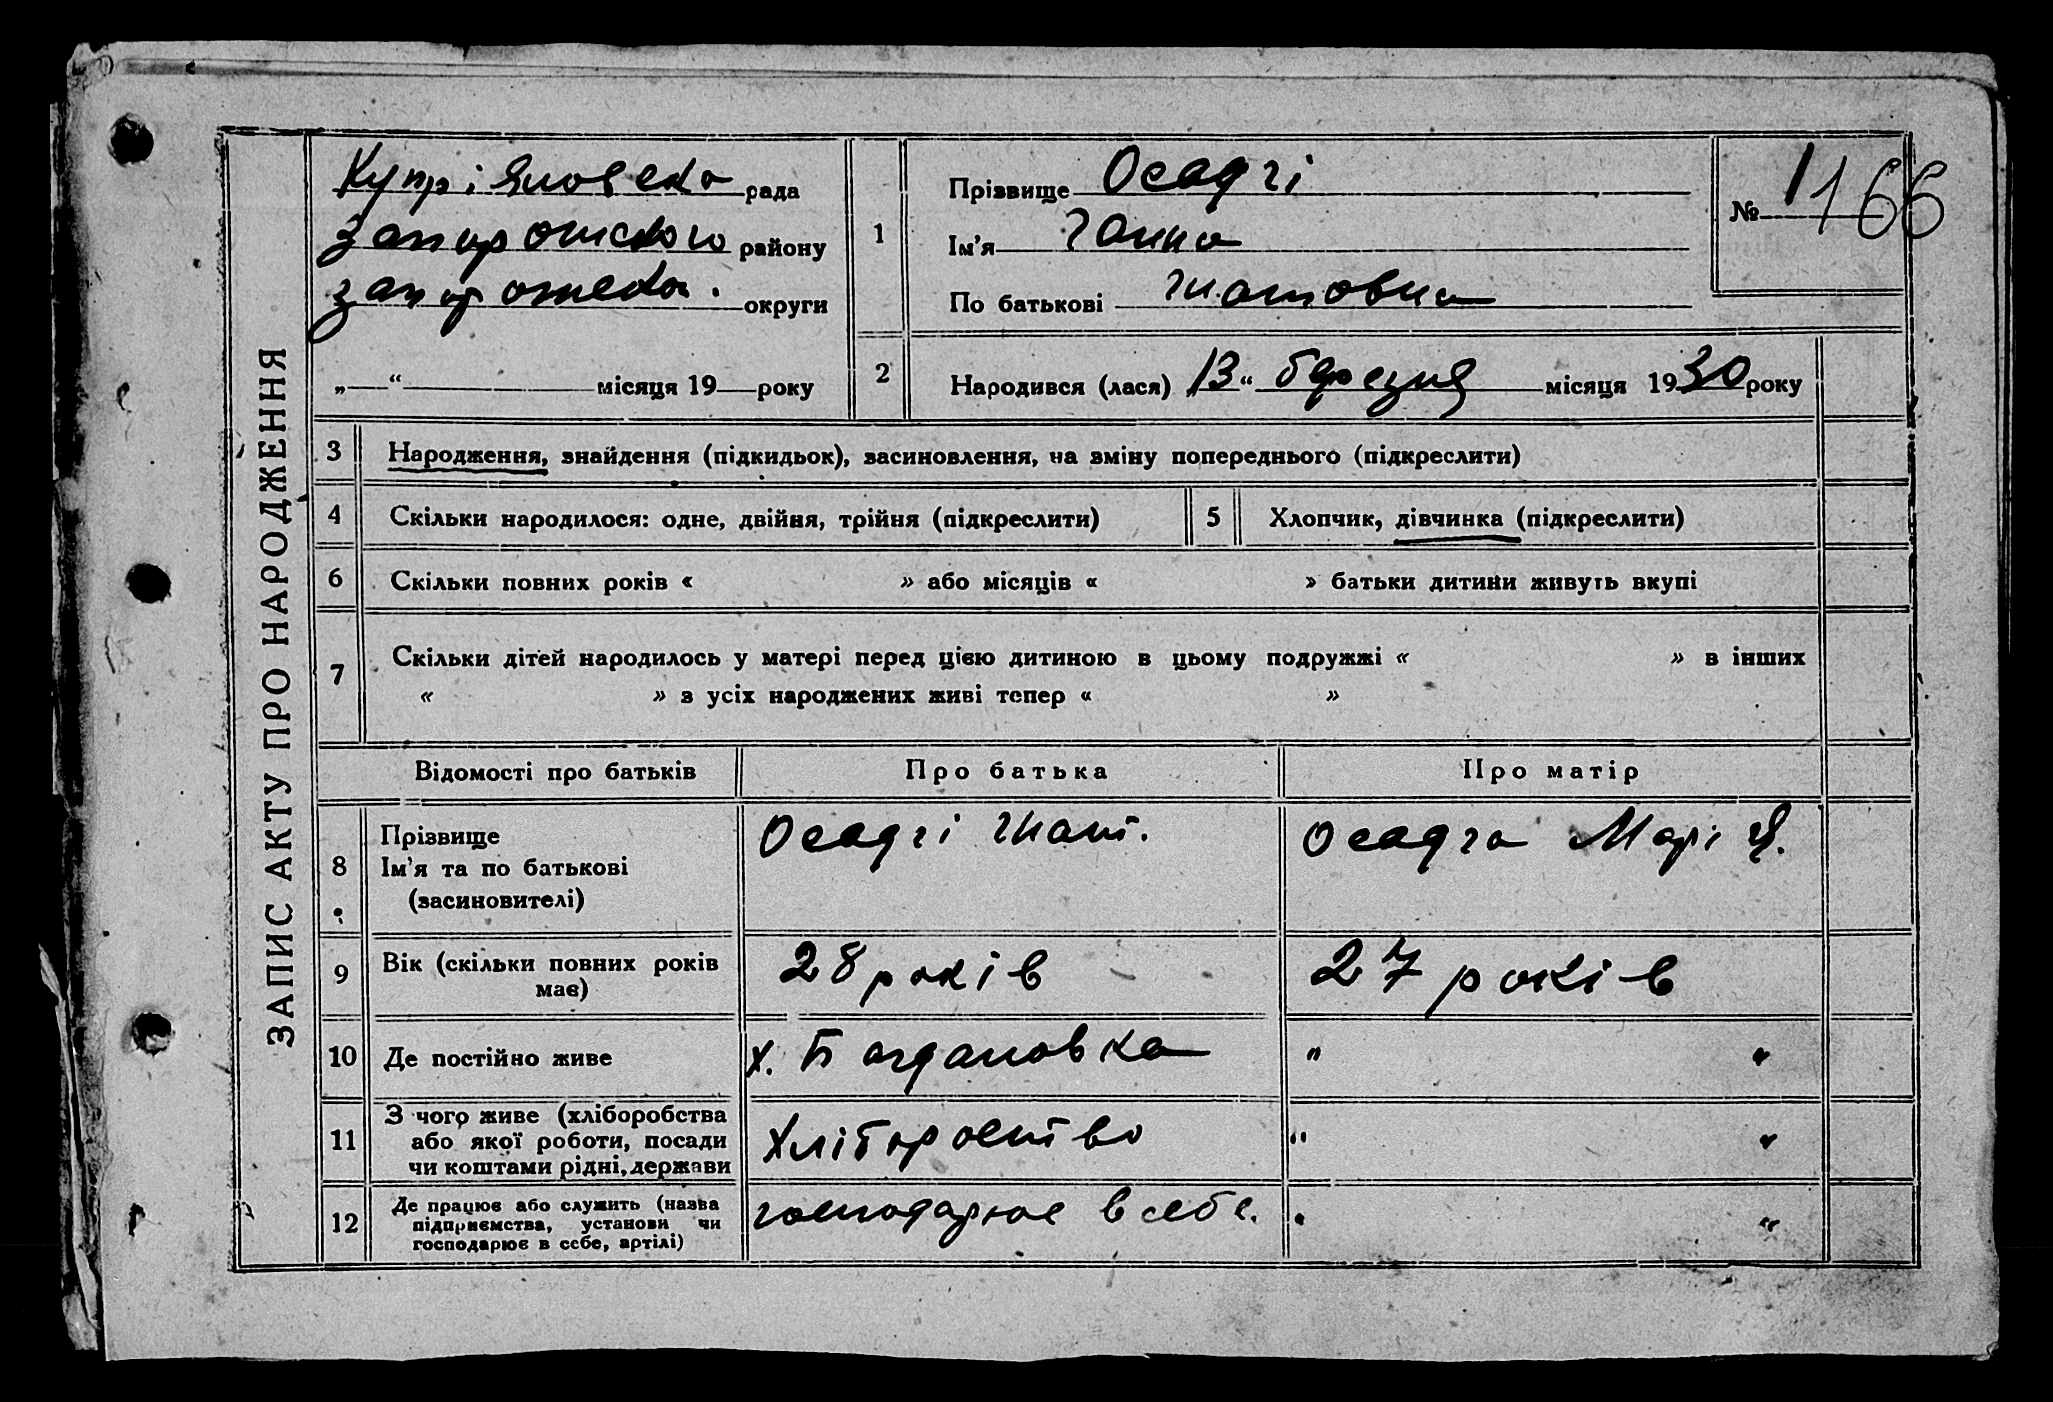 ЗАПИС АКТУ ПРО НАРОДЖЕННЯ
Купріяновська рада
Запорошского району
Запорошська. округи
„ “ місяця 19 року
1
Прізвище Осадчі
Ім'я Ганна
По батькові Гнатовна
№ 1166
2
Народився (лася) 13 “ березня місяця 1930 року
3 Народження, знайдення (підкидьок), засиновлення, на зміну попереднього (підкреслити)
4 Скільки народилося: одне, двійня, трійня (підкреслити) 5 Хлопчик, дівчинка (підкреслити)
6 Скільки повних років « » або місяців « » батьки дитини живуть вкупі
7 Скільки дітей народилось у матері перед цією дитиною в цьому подружжі « » в інших
« » з усіх народжених живі тепер « »
Відомості про батьків Про батька Про матір
8 Прізвище
Ім'я та по батькові
(засиновителі)
Осадчі Гнат. Осадча Марія.
9 Вік (скільки повних років
має)
28 років 27 років
10 Де постійно живе х. Богдановка " "
11 З чого живе (хліборобства
або якої роботи, посади
чи коштами рідні, держави
Хліборобство " "
12 Де працює або служить (назва
підприємства, установи чи
господарює в себе, артілі)
господарює в себе. " "